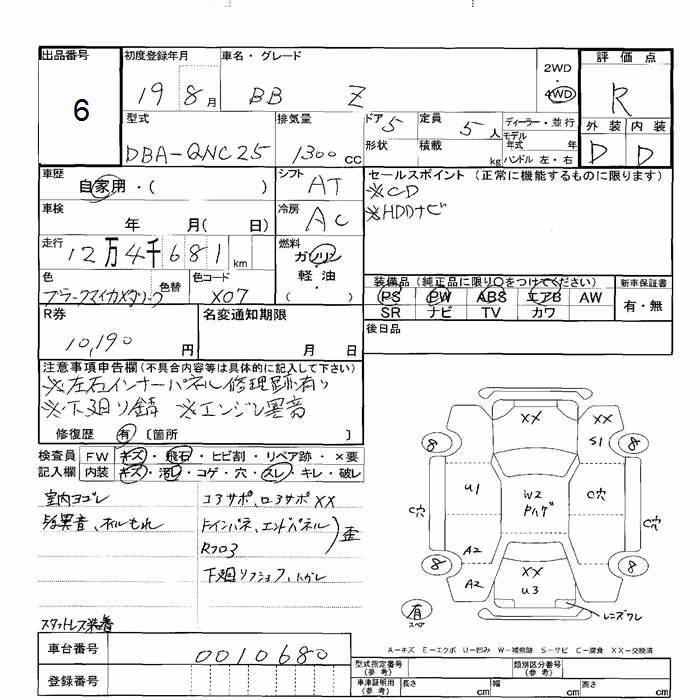 出品番号
6
初度登録年月
19 8月
車名・グレード
BB Z
2WD
4WD
評価点
R
外装 内装
D D
型式
DBA-QNC25
排気量
1300cc
ドア 5
形状
定員 5人
積載 kg
ディーラー・並行
モデル年式 年
ハンドル 左・右
車歴
自家用・( )
シフト AT
車検
年 月( 日)
冷房 AC
走行
12万4千681km
燃料
ガソリン
軽・油
( )
色
ブラックマイカメタリック
色替
色コード
X07
セールスポイント (正常に機能するものに限ります)
※CD
※HDDナビ
装備品(純正品に限り○をつけてください)
PS PW ABS エアB AW
SR ナビ TV カワ
新車保証書
有・無
後日品
R券
10,190円
名変通知期限
月 日
注意事項申告欄(不具合内容等は具体的に記入して下さい)
※左右インナーパネル修理跡有り
※下廻り錆 ※エンジン異音
修復歴 有 〔箇所 〕
検査員記入欄
FW キズ・飛石・ヒビ割・リペア跡・×要
内装 キズ・汚レ・コゲ・穴・スレ・キレ・破レ
室内ヨゴレ
異音、オイルもれ
コアサポ、ロアサポXX
エンドパネル
歪
スタットレス装着
XX
XX
S1
8
8
U1
W2
Pハゲ
C穴
C穴
C穴
A2
A2
8
8
XX
U3
有
スペア
レンズワレ
A-キズ E-エクボ U-凹み W-補修跡 S-サビ C-腐食 XX-交換済
車台番号
0010680
登録番号
型式指定番号(参考)
類別区分番号(参考)
車庫証明用(参考)
長さ cm
幅 cm
高さ cm